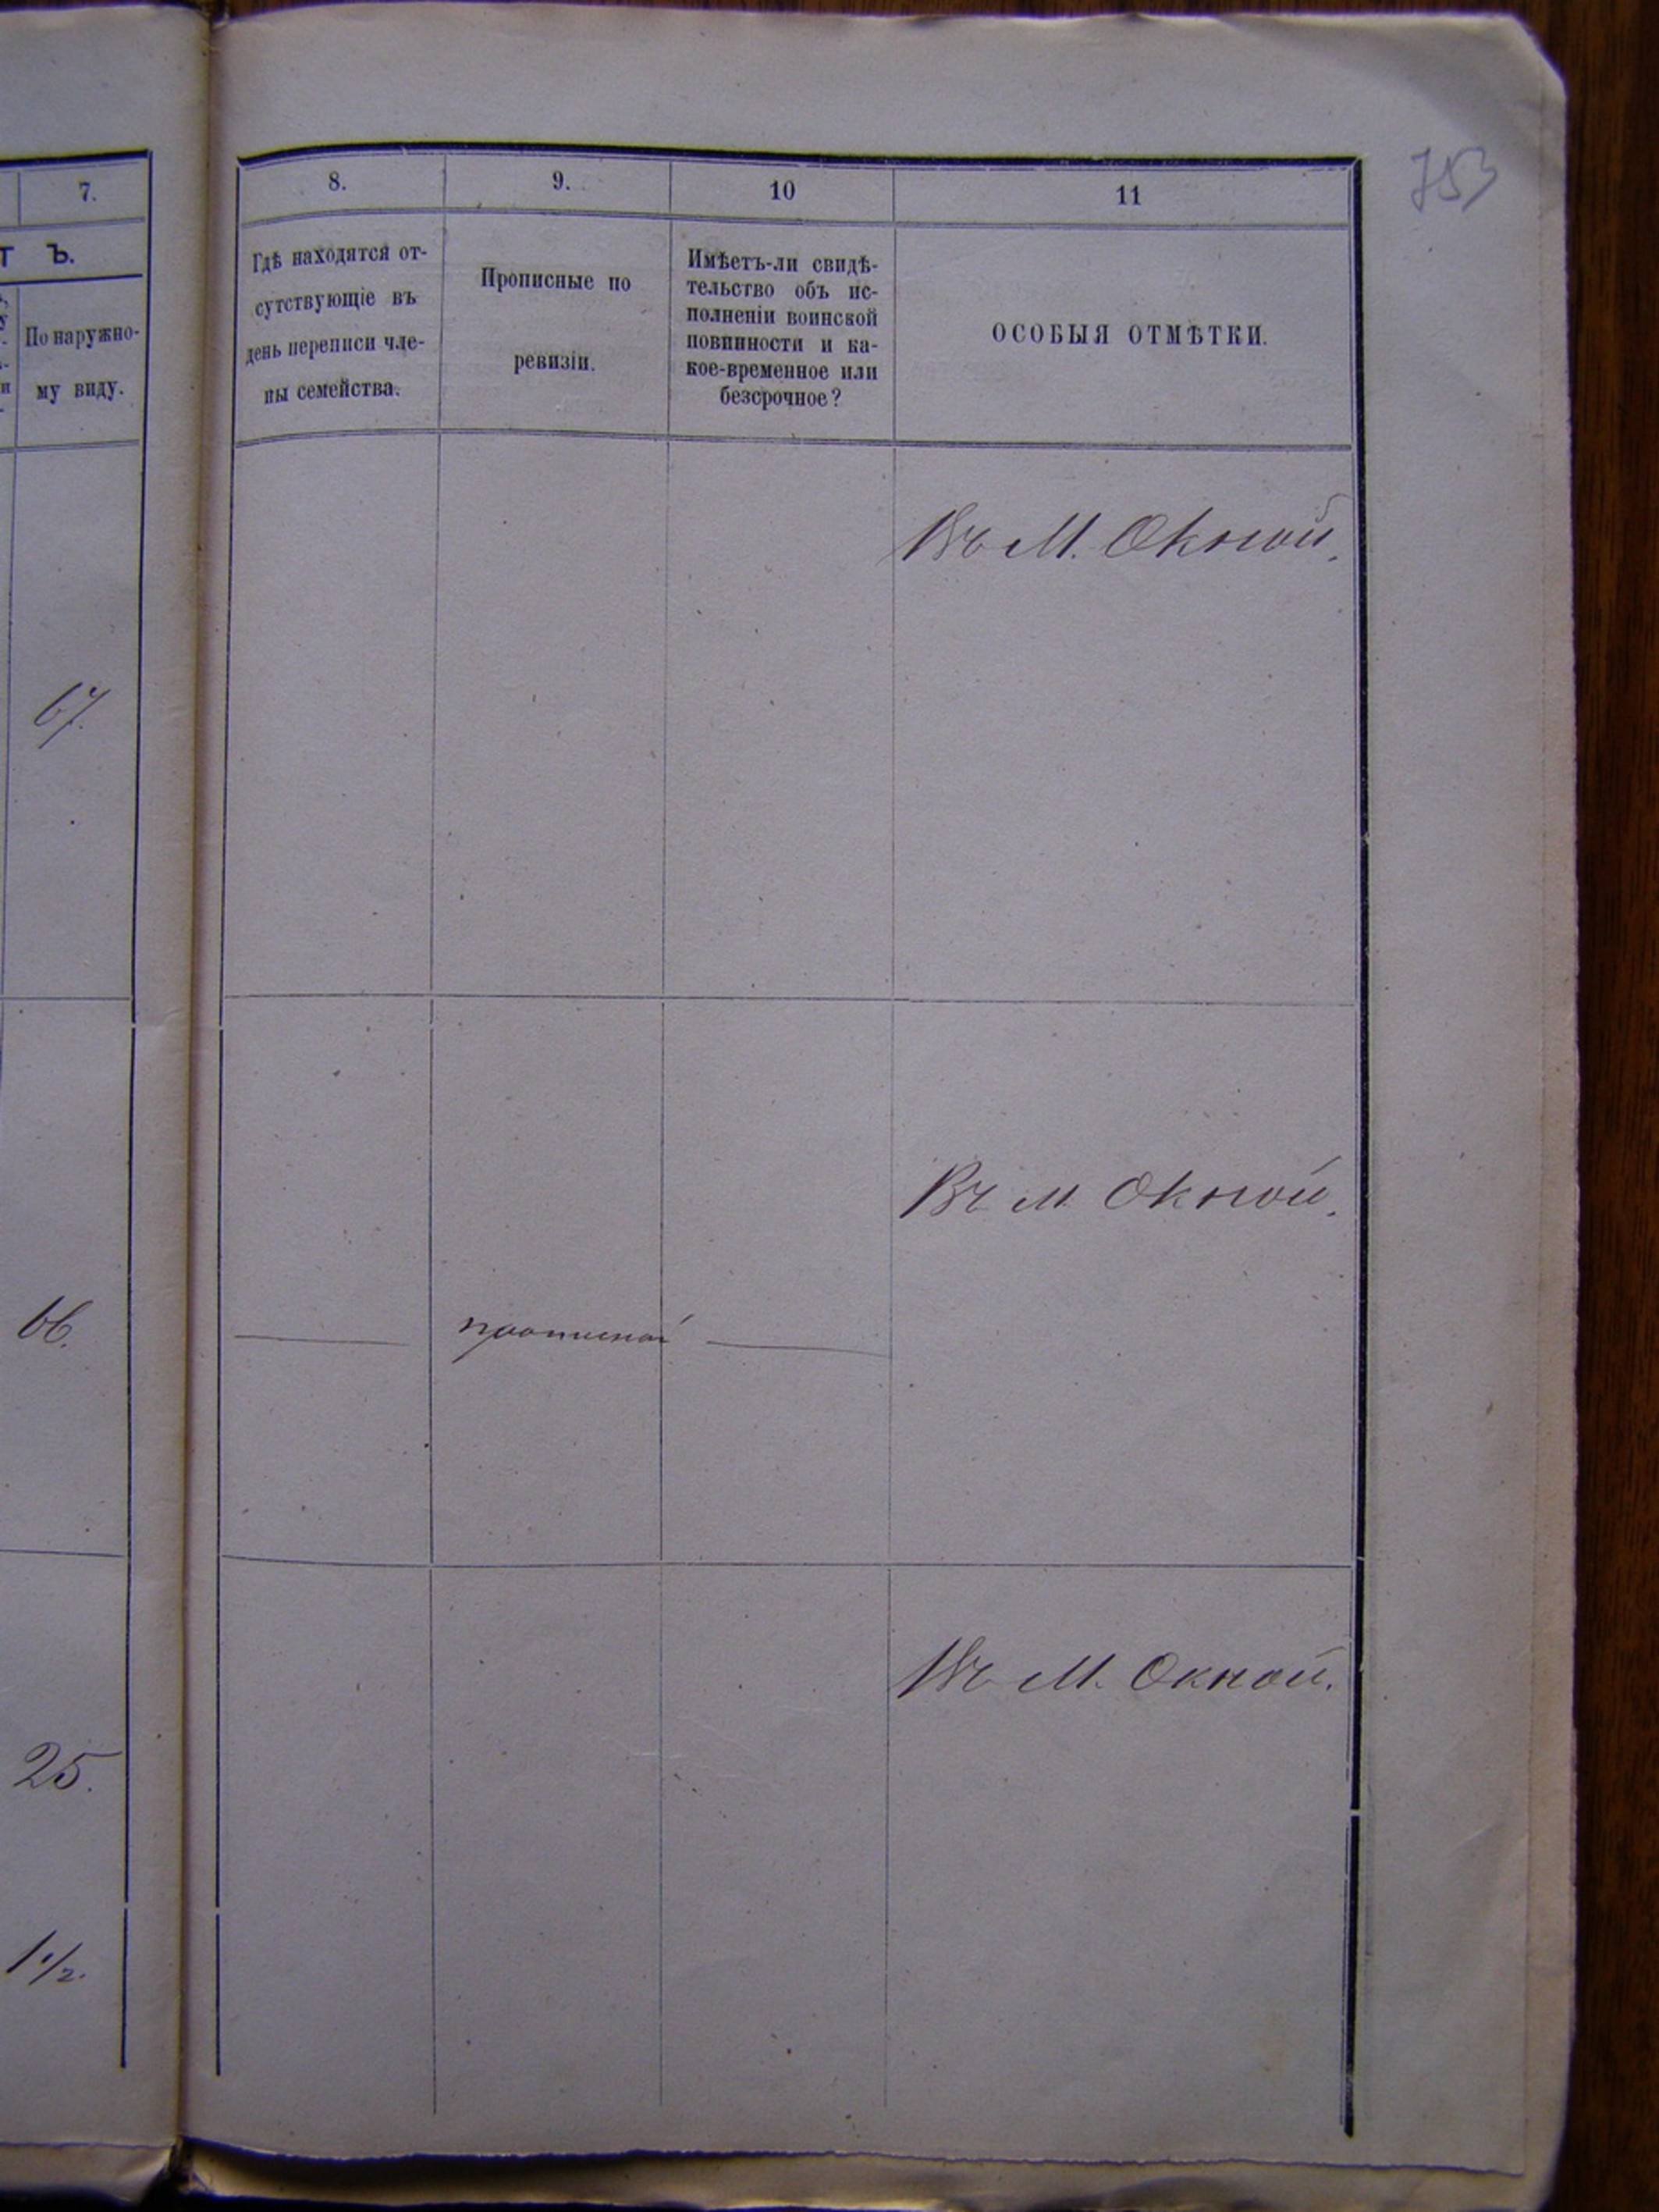 753
7.
Т Ъ.
По наружно-
му виду.
67.
66.
25.
1 1/2.
8.
9.
10
11
Гдѣ находятся от-
сутствующіе въ
день переписи чле-
ны семейства.
Прописные по
ревизіи.
Имѣетъ-ли свидѣ-
тельство объ ис-
полненіи воинской
повинности и ка-
кое-временное или
безсрочное?
ОСОБЫЯ ОТМѢТКИ.
Въ М. Окной.
Въ М. Окной.
прописной
Въ М. Окной.